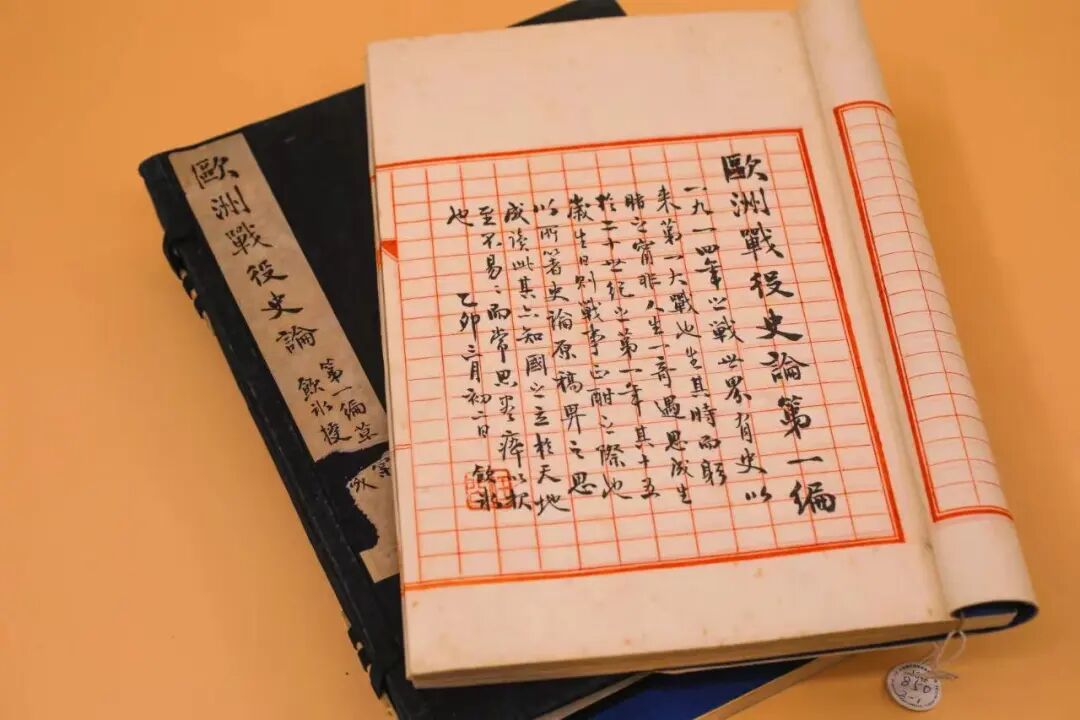 歐洲戰役史論第一編
一九一四年之戰世界有史以
来第一大戰也生其時而躬
睹之甯非人生一奇遇思成生
於二十世紀之第一年其十五
歲生日則戰事正酣之際也
以所箸史論原稿畀之思
成讀此其亦知國之立於天地
至不易〻而常思盡瘁以报
也
乙卯三月初二日 飲冰
歐洲戰役史論
第一編草
飲冰授
成
850
2-1